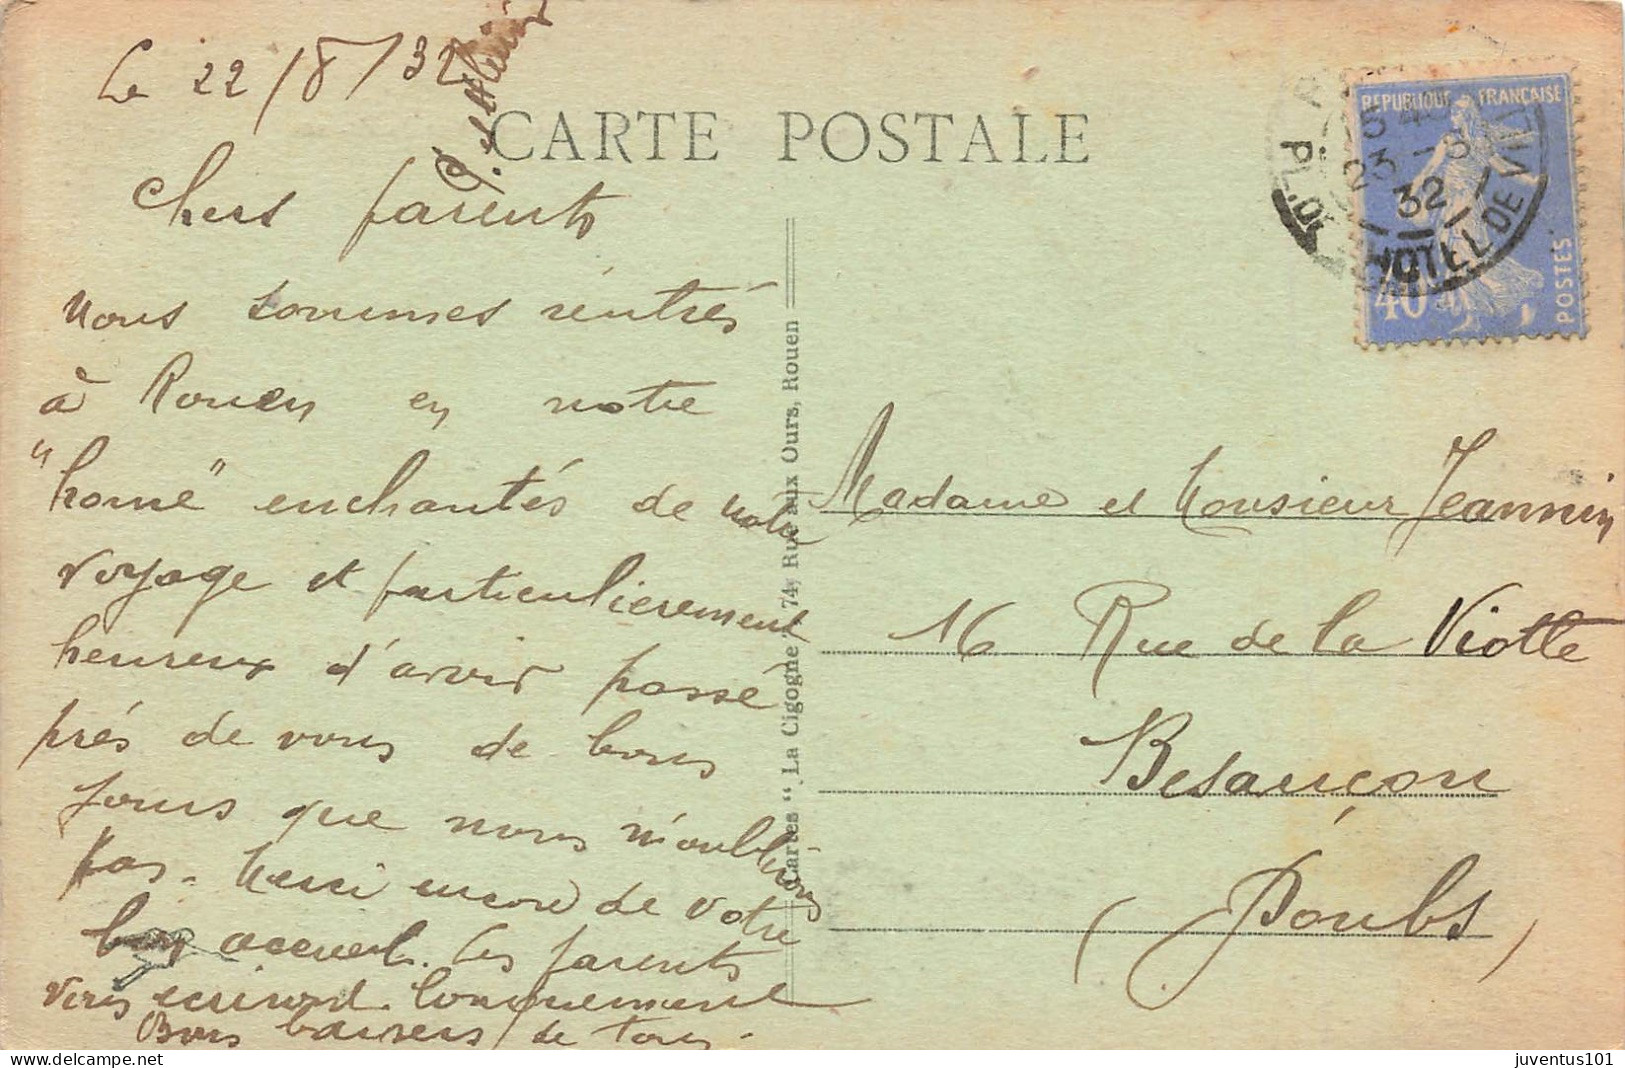 Le 22/8/32
CARTE POSTALE
Chers parents
Nous sommes rentrés
à Rouen en notre
"home" enchantés de notre
voyage et particulièrement
heureux d'avoir passé
près de vous de bons
jours que nous n'oublions
pas. Merci encore de votre
bon accueil. Les parents
vous écriront longuement
Bons baisers de tous.
Cartes "La Cigogne", 74, Rue aux Ours, Rouen
REPUBLIQUE FRANÇAISE
POSTES
40
23 - 8
32
PL. DE HOTEL DE VILLE
Madame et Monsieur Jeannin
16 Rue de la Viotte
Besançon
(Doubs)
juventus101